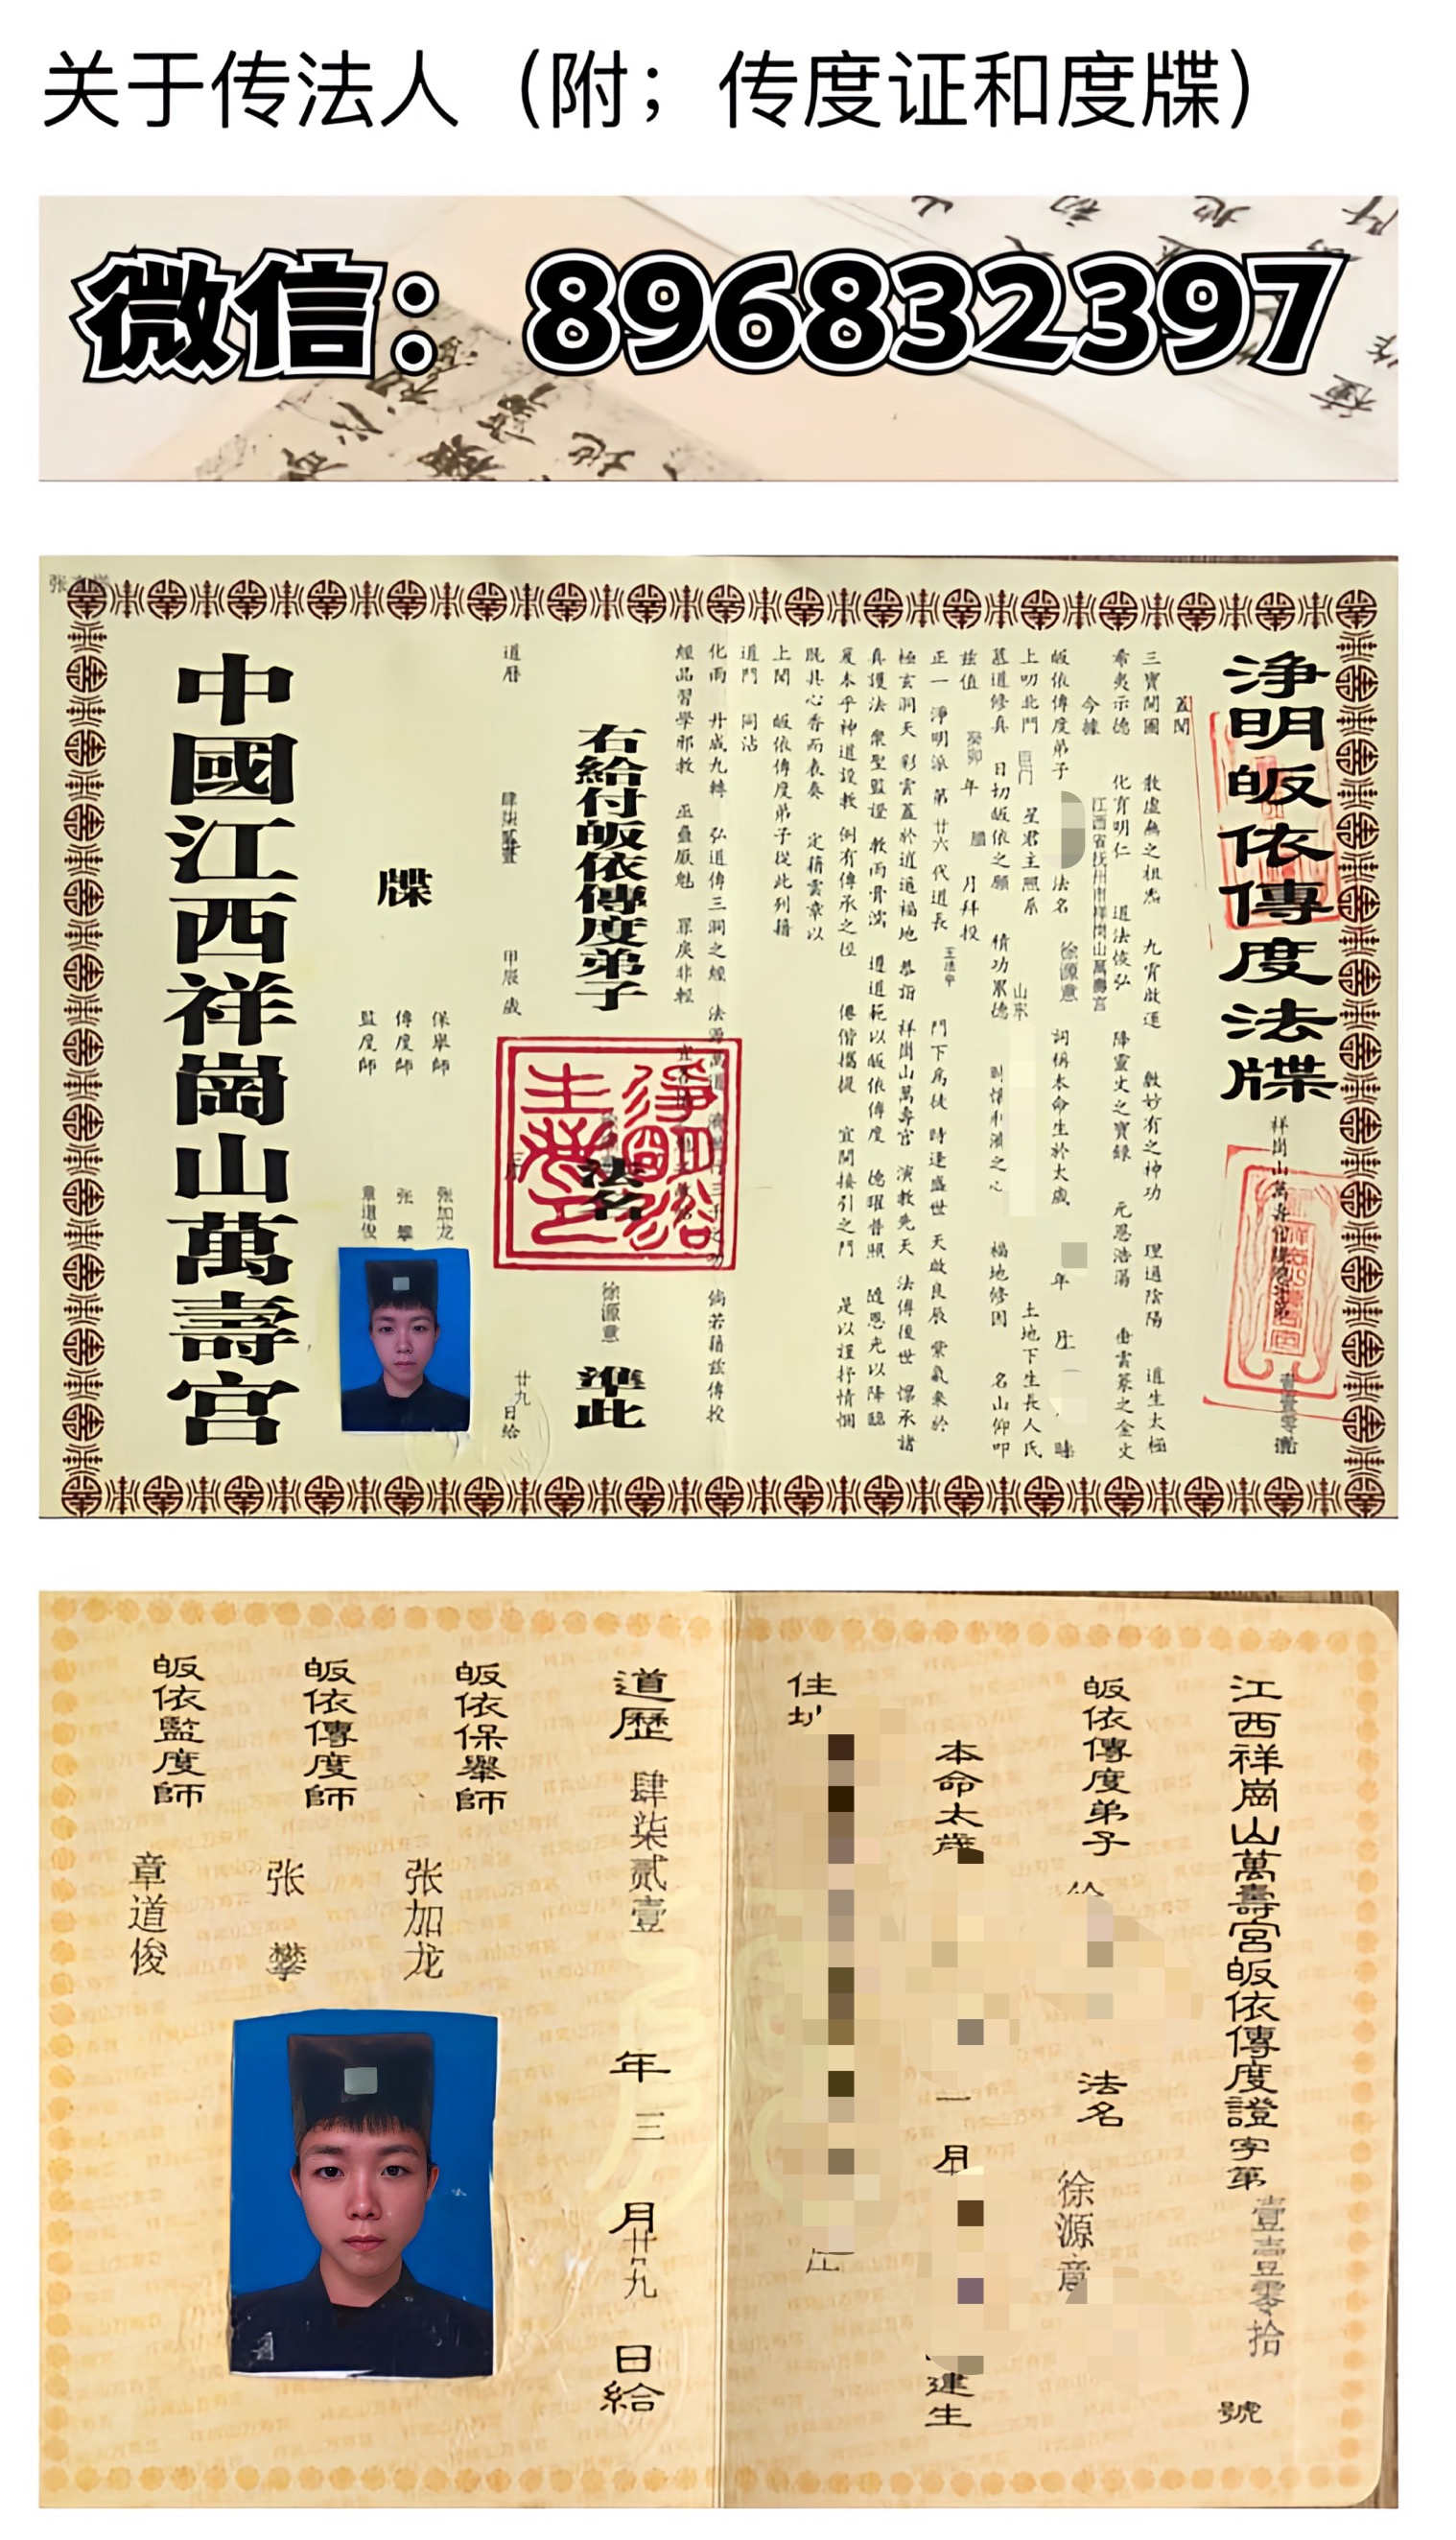 关于传法人（附；传度证和度牒）
微信：896832397
浄明皈依傳度法牒
蓋聞
三寶開圖 散虛無之祖炁 九霄啟運 敷妙有之神功 理通陰陽 道生太極
希夷示德 化育明仁 道法恢弘 降靈文之寶錄 元恩浩蕩 垂雲篆之金文
今據 江西省抚州市祥崗山萬壽宫
皈依傳度弟子 法名 徐源意 詞稱本命生於太歲 年 月 時
上叩北斗 星君主照系 山东 土地下生長人氏
慕道修真 日切皈依之願 積功累德 時懷利濟之心 福地修因 名山仰叩
兹值 癸卯 年 腊 月拜投
正一 淨明派 第 廿六 代道長 門下為徒 時逢盛世 天啟良辰 紫氣來於
極玄洞天 彩雲蓋於逍遥福地 恭詣 祥崗山萬壽宫 演教先天 法傳後世 懷承諸
真護法 衆聖監證 教雨膏濡 道範以皈依傳度 德曜普照 隨恩光以降臨
爰本乎神道設教 例有傳承之徑 傳偕攜提 宜開接引之門 是以謹抒情悃
既具心香而表奏 定藉雲章以
上聞 皈依傳度弟子從此列籍
道門 同沾
化雨 丹成九轉 弘道傳三洞之經 倘若藉兹傳授
經品習學邪教 巫蠱厭魅 罪戾非輕
右給付皈依傳度弟子 法名 徐源意 準此
道曆 肆柒貳壹 甲辰 歲 三月 廿九 日給
牒
保舉師 张加龙
傳度師 张攀
監度師 章道俊
中國江西祥崗山萬壽宮
江西祥崗山萬壽宮皈依傳度證字第 號
皈依傳度弟子 法名 徐源意
本命太歲 一 月 建生
住址
道歷 肆柒贰壹 年 三 月 廿九 日給
皈依保舉師 张加龙
皈依傳度師 张攀
皈依監度師 章道俊